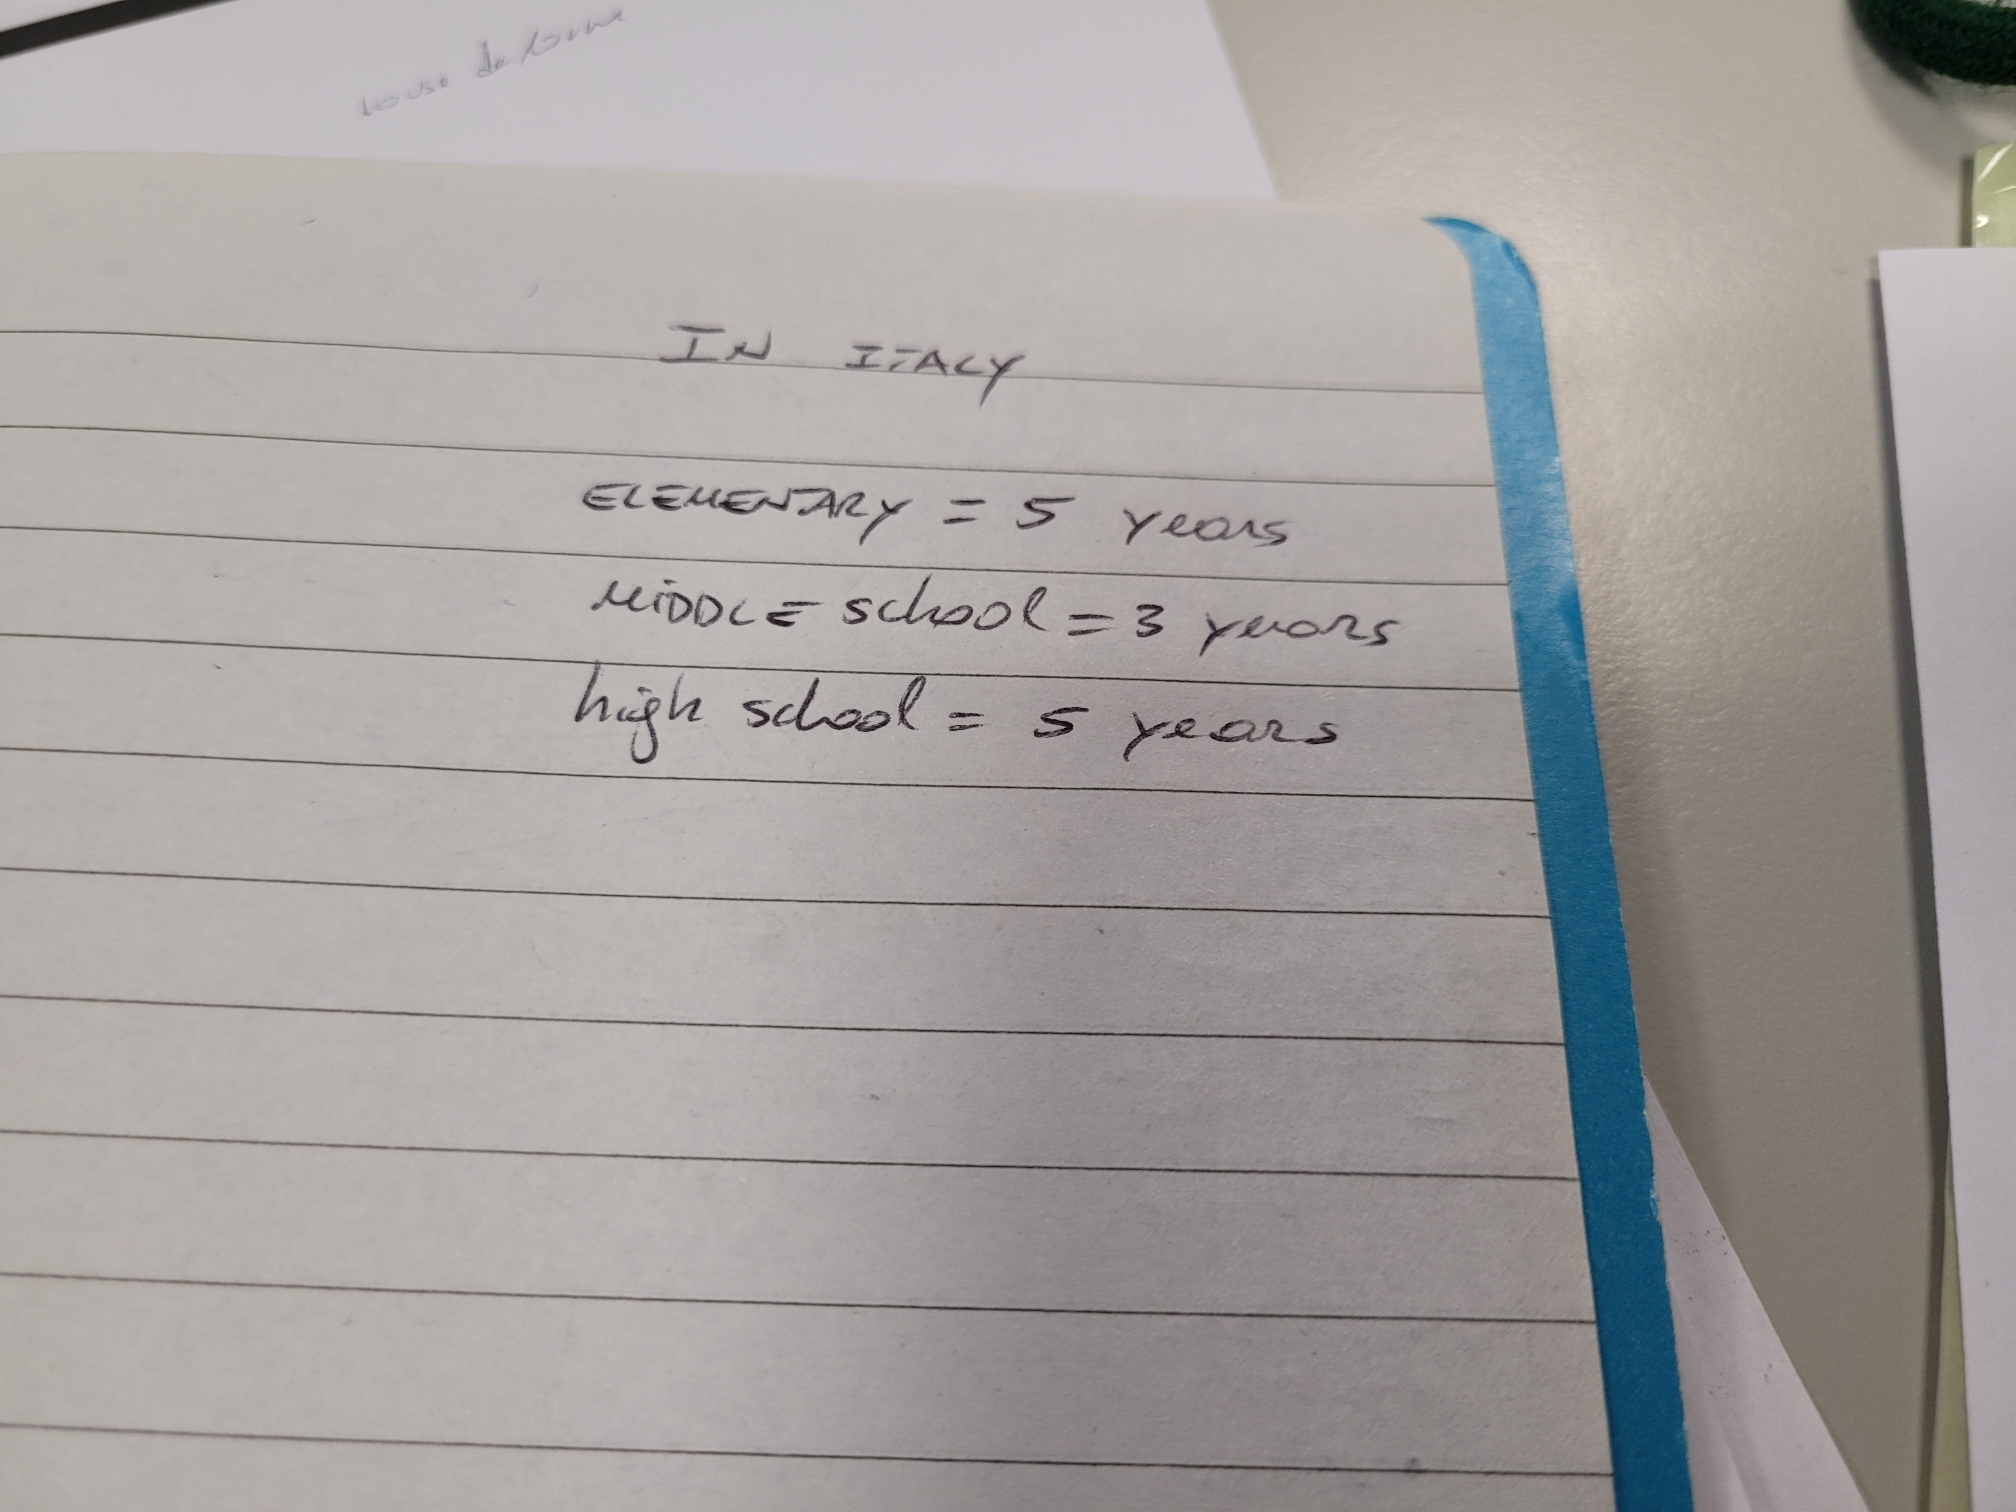 IN ITALY
ELEMENTARY = 5 years
MIDDLE school = 3 years
high school = 5 years